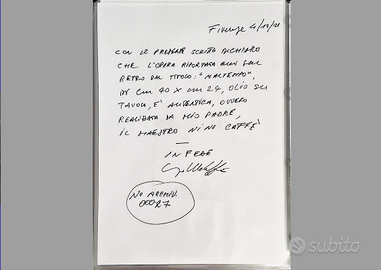 Firenze 4/12/21
CON LA PRESENTE SCRITTO DICHIARO
CHE L'OPERA RIPORTATA QUI SUL
RETRO DAL TITOLO: "MALTEMPO",
DI CM 40 X CM 24, OLIO SU
TAVOLA, E' AUTENTICA, OVVERO
REALIZZATA DA MIO PADRE,
IL MAESTRO NINO CAFFE'
IN FEDE
NO ARCHIVIO
00027
subito